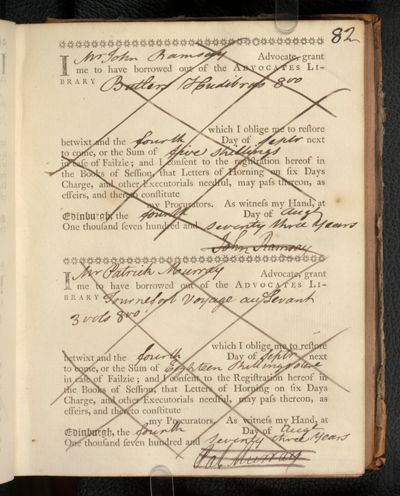 82
I Mr John Ramsay Advocate, grant
me to have borrowed out of the ADVOCATES LI-
BRARY Butlers Hudibras 8vo
which I oblige me to reſtore
betwixt and the fourth Day of Septr next
to come, or the Sum of five Shillings
in caſe of Failzie; and I conſent to the regiſtration hereof in
the Books of Seſſion, that Letters of Horning on ſix Days
Charge, and other Executorials needful, may paſs thereon, as
effeirs, and thereto conſtitute
my Procurators. As witneſs my Hand, at
Edinburgh, the fourth Day of Augt
One thouſand ſeven hundred and seventy three Years
John Ramsay
I Mr Patrick Murray Advocate, grant
me to have borrowed out of the ADVOCATES LI-
BRARY Tournefort Voyage au Levant
3 vols 8vo
which I oblige me to reſtore
betwixt and the fourth Day of Septr next
to come, or the Sum of Eighteen Shillings
in caſe of Failzie; and I conſent to the Regiſtration hereof in
the Books of Seſſion, that Letters of Horning on ſix Days
Charge, and other Executorials needful, may paſs thereon, as
effeirs, and thereto conſtitute
my Procurators. As witneſs my Hand, at
Edinburgh, the fourth Day of Augt
One thouſand ſeven hundred and seventy three Years
Pat. Murray